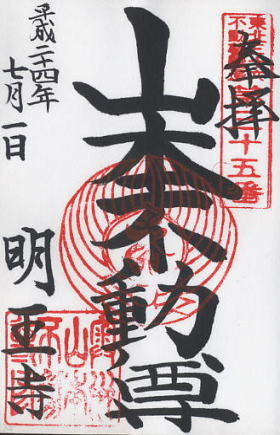 奉拝
東北
不動
十五番
山本不動尊
平成二十四年
七月一日
明王寺